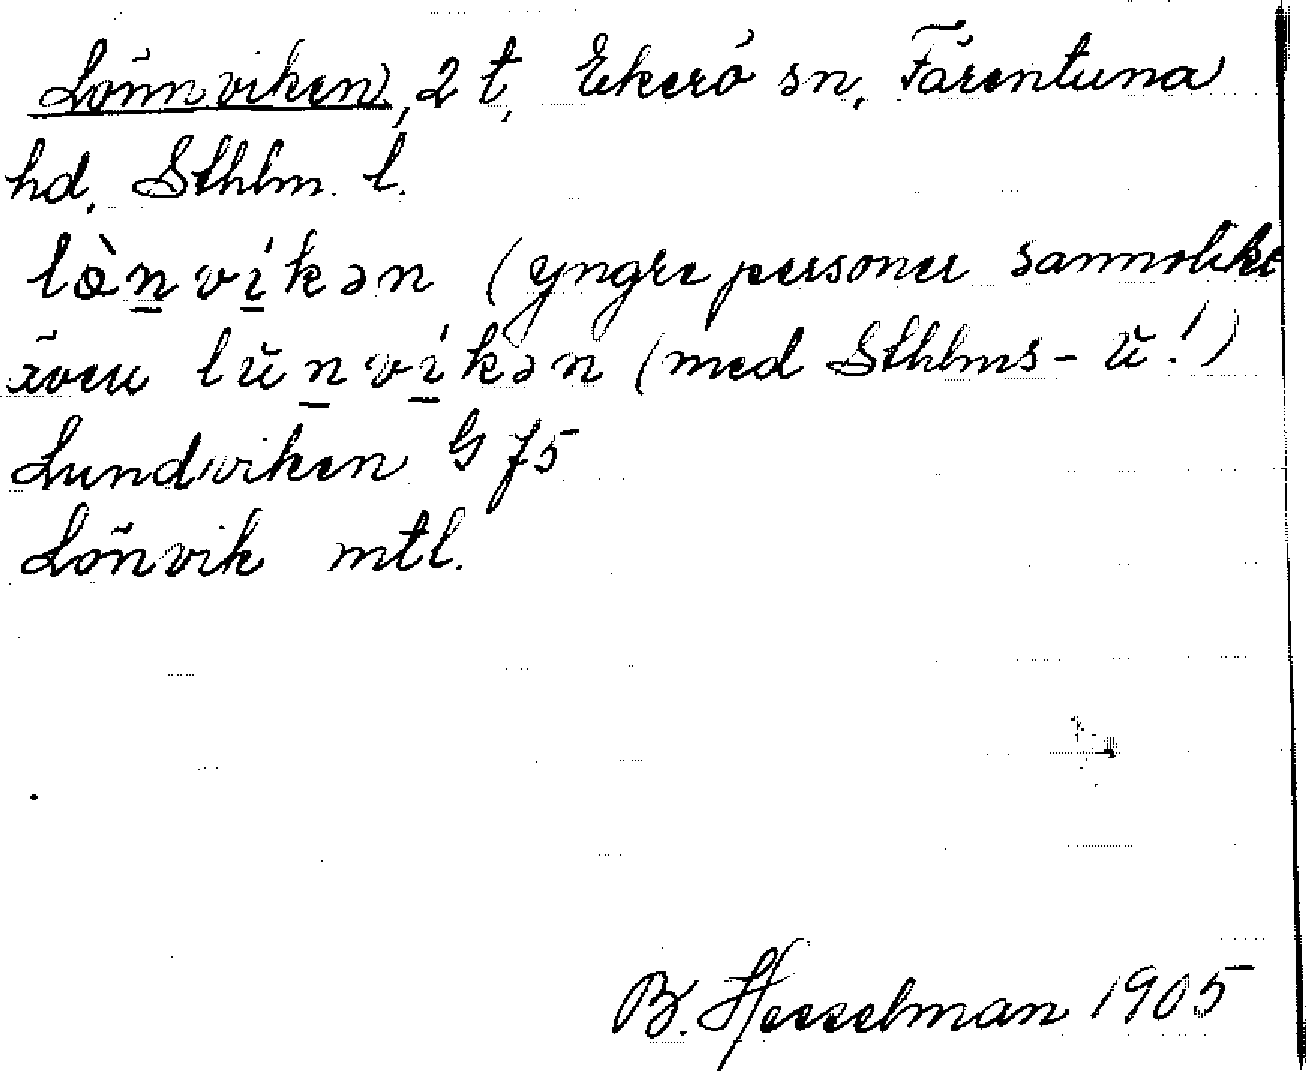 Lönnviken, 2 t, Ekerö sn, Färentuna
hd. Sthlm. l.
lœ̀n̲ví̲kən (yngre personer sannolikt
även lŭn̲ví̲kən (med Sthlms- ŭ!)
Lundviken G J5
Lönvik mtl.
B. Hesselman 1905